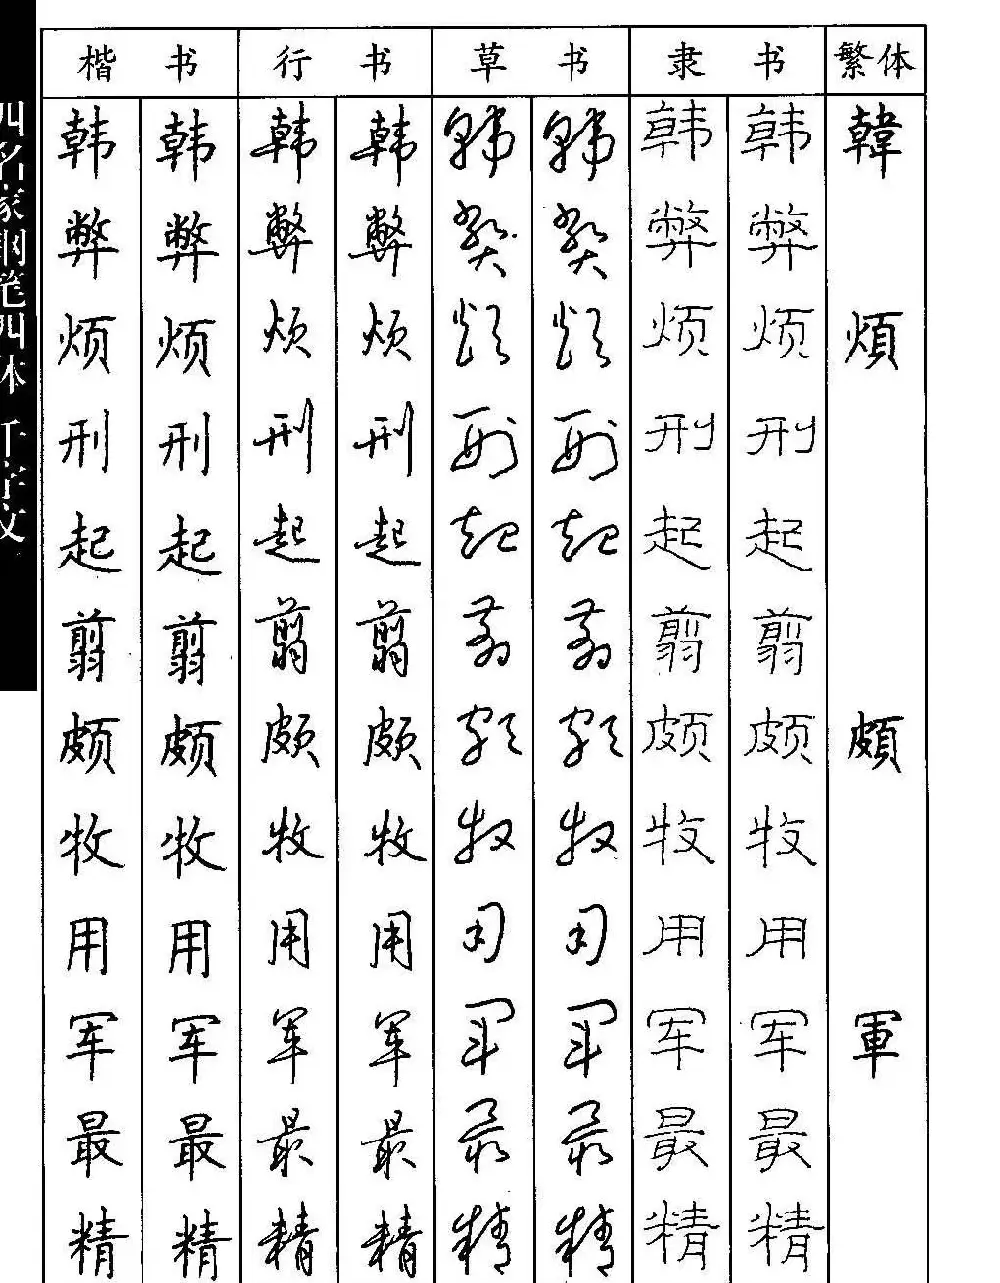 楷书 行书 草书 隶书 繁体
韩 韩 韩 韩 韩 韩 韩 韩 韓
弊 弊 弊 弊 弊 弊 弊 弊
烦 烦 烦 烦 烦 烦 烦 烦 煩
刑 刑 刑 刑 刑 刑 刑 刑
起 起 起 起 起 起 起 起
翦 翦 翦 翦 翦 翦 翦 翦
颇 颇 颇 颇 颇 颇 颇 颇 頗
牧 牧 牧 牧 牧 牧 牧 牧
用 用 用 用 用 用 用 用
军 军 军 军 军 军 军 军 軍
最 最 最 最 最 最 最 最
精 精 精 精 精 精 精 精
四名家钢笔四体千字文